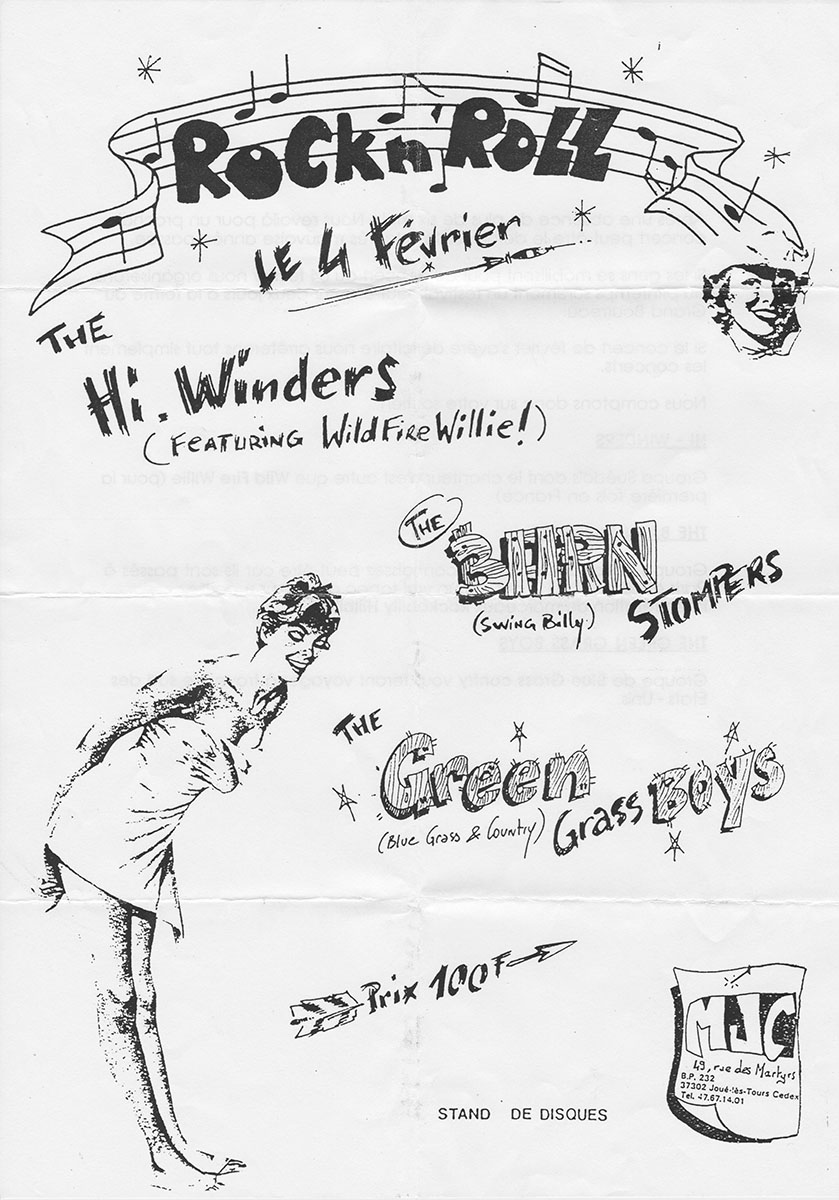 ROCK n' ROLL
LE 4 Février
THE
Hi. Winders
(FEATURING WildFire Willie!)
THE
BARN
STOMPERS
(SWING Billy)
THE
Green
Grass Boys
(Blue Grass & Country)
Prix 100F
MJC
49, rue des Martyrs
B.P. 232
37302 Joué-lès-Tours Cedex
Tel. 47.67.14.01
STAND DE DISQUES